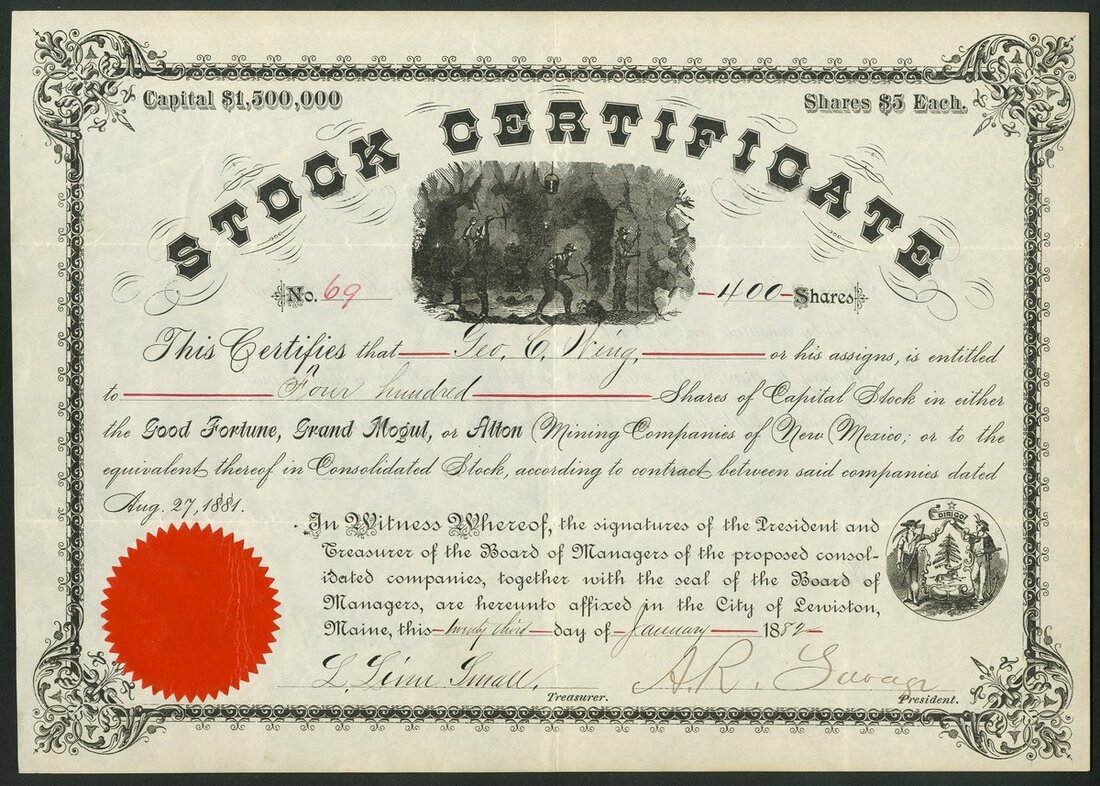 Capital $1,500,000
Shares $5 Each.
STOCK CERTIFICATE
No. 69
-400- Shares
This Certifies that Geo. C. Wing, or his assigns, is entitled
to Four hundred Shares of Capital Stock in either
the Good Fortune, Grand Mogul, or Alton Mining Companies of New Mexico; or to the
equivalent thereof in Consolidated Stock, according to contract between said companies dated
Aug. 27, 1881.
DIRIGO
In Witness Whereof, the signatures of the President and
Treasurer of the Board of Managers of the proposed consol-
idated companies, together with the seal of the Board of
Managers, are hereunto affixed in the City of Lewiston,
Maine, this twenty third day of January 1882
L. Linn Small, Treasurer.
A.R. Savage President.